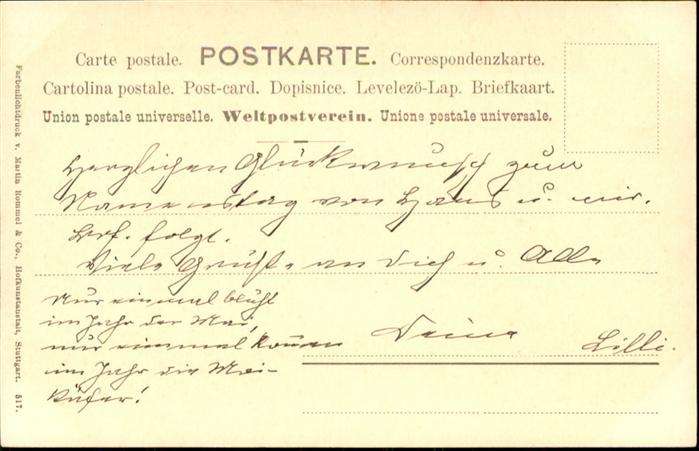 Carte postale. POSTKARTE. Correspondenzkarte.
Cartolina postale. Post-card. Dopisnice. Levelezö-Lap. Briefkaart.
Union postale universelle. Weltpostverein. Unione postale universale.
Herzlichen Glückwunsch zum
Namenstag von Hans u. mir.
Brf. folgt.
Viele Grüße an Dich u. Alle
Deine Lilli.
Nur einmal blüht
im Jahr der Mai,
nur einmal kommen
im Jahr die Mai-
käfer!
Farbenlichtdruck v. Martin Rommel & Co., Hofkunstanstalt, Stuttgart. 517.